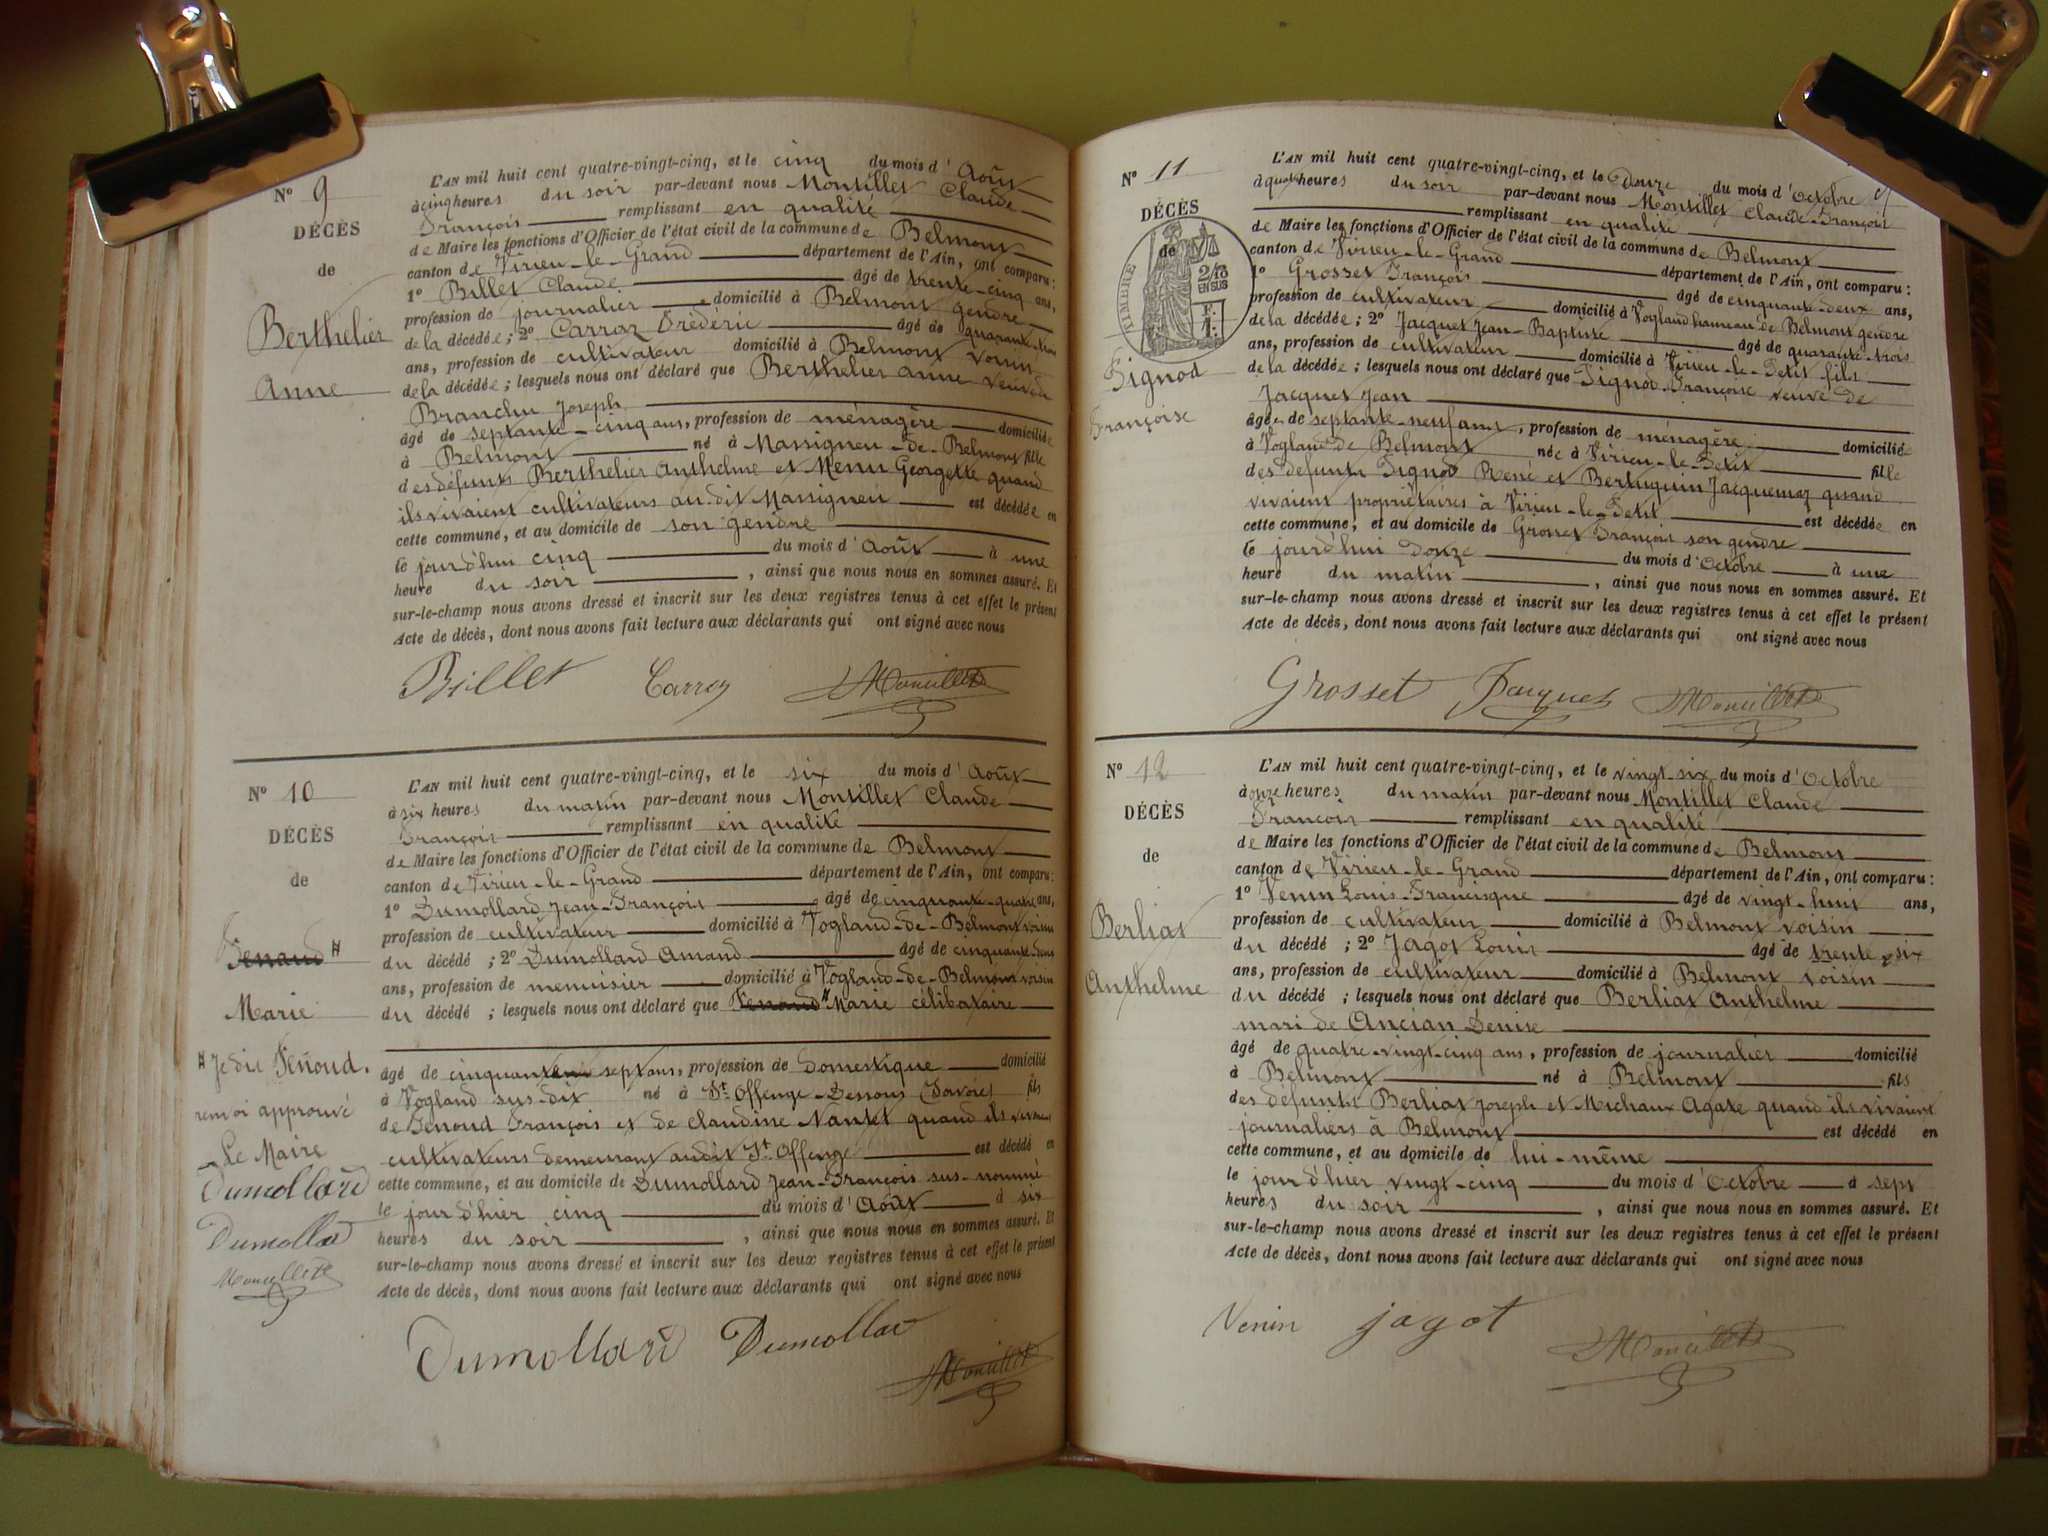 N° 9
DÉCÈS
de
Berthelier
Anne
L'AN mil huit cent quatre-vingt-cinq, et le cinq du mois d'Août
à cinq heures du soir par-devant nous Montillet Claude
François remplissant en qualité
de Maire les fonctions d'Officier de l'état civil de la commune de Belmont
canton de Virieu-le-Grand département de l'Ain, ont comparu:
1° Billet Claude âgé de trente-cinq ans,
profession de journalier, domicilié à Belmont gendre
de la décédée; 2° Carraz Frédéric âgé de quarante-trois
ans, profession de cultivateur domicilié à Belmont voisin
de la décédée; lesquels nous ont déclaré que Berthelier Anne veuve de
Branchu Joseph
âgé de septante-cinq ans, profession de ménagère domiciliée
à Belmont né à Massigneu-de-Belmont fille
des défunts Berthelier Anthelme et Menu Georgette quand
ils vivaient cultivateurs au dit Massigneu est décédée en
cette commune, et au domicile de son gendre
le jourd'hui cinq du mois d'Août à une
heure du soir, ainsi que nous nous en sommes assuré. Et
sur-le-champ nous avons dressé et inscrit sur les deux registres tenus à cet effet le présent
Acte de décès, dont nous avons fait lecture aux déclarants qui ont signé avec nous
Billet Carroz Montillet
N° 10
DÉCÈS
de
Fenaud #
Marie
# Je dis Fenoud.
renvoi approuvé
Le Maire
Dumollard
Dumollar
Montillet
L'AN mil huit cent quatre-vingt-cinq, et le six du mois d'Août
à six heures du matin par-devant nous Montillet Claude
François remplissant en qualité
de Maire les fonctions d'Officier de l'état civil de la commune de Belmont
canton de Virieu-le-Grand département de l'Ain, ont comparu:
1° Dumollard Jean-François âgé de cinquante-quatre ans,
profession de cultivateur domicilié à Vogland-de-Belmont voisin
du décédé; 2° Dumollard Amand âgé de cinquante-deux
ans, profession de menuisier domicilié à Vogland-de-Belmont voisin
du décédé; lesquels nous ont déclaré que Fenaud # Marie célibataire
âgé de cinquante sept ans, profession de domestique domicilié
à Vogland sus-dit né à St Offenge-Dessous (Savoie) fils
de Fenoud François et de Claudine Nantet quand ils vivaient
cultivateurs demeurant audit St Offenge est décédé en
cette commune, et au domicile de Dumollard Jean-François sus-nommé
le jour d'hier cinq du mois d'Août à six
heures du soir, ainsi que nous nous en sommes assuré. Et
sur-le-champ nous avons dressé et inscrit sur les deux registres tenus à cet effet le présent
Acte de décès, dont nous avons fait lecture aux déclarants qui ont signé avec nous
Dumollard Dumollar
Montillet
N° 11
DÉCÈS
de
TIMBRE
2/10
EN SUS
F.
1.
Pignod
Françoise
L'AN mil huit cent quatre-vingt-cinq, et le Douze du mois d'Octobre
à quatre heures du soir par-devant nous Montillet Claude-François
remplissant en qualité
de Maire les fonctions d'Officier de l'état civil de la commune de Belmont
canton de Virieu-le-Grand département de l'Ain, ont comparu:
1° Grosset François âgé de cinquante-deux ans,
profession de cultivateur domicilié à Vogland hameau de Belmont gendre
de la décédée; 2° Jacquet Jean-Baptiste âgé de quarante-trois
ans, profession de cultivateur domicilié à Virieu-le-Petit fils
de la décédée; lesquels nous ont déclaré que Pignod Françoise veuve de
Jacquet Jean
âgée de septante-neuf ans, profession de ménagère domiciliée
à Vogland de Belmont née à Virieu-le-Petit fille
des défunts Pignod René et Bertuguin Jacquemaz quand
vivaient propriétaires à Virieu-le-Petit est décédée en
cette commune, et au domicile de Grosset François son gendre
le jourd'hui douze du mois d'Octobre à une
heure du matin, ainsi que nous nous en sommes assuré. Et
sur-le-champ nous avons dressé et inscrit sur les deux registres tenus à cet effet le présent
Acte de décès, dont nous avons fait lecture aux déclarants qui ont signé avec nous
Grosset Jacquet Montillet
N° 12
DÉCÈS
de
Berliat
Anthelme
L'AN mil huit cent quatre-vingt-cinq, et le vingt-six du mois d'Octobre
à onze heures du matin par-devant nous Montillet Claude
François remplissant en qualité
de Maire les fonctions d'Officier de l'état civil de la commune de Belmont
canton de Virieu-le-Grand département de l'Ain, ont comparu:
1° Venin Louis-Francisque âgé de vingt-huit ans,
profession de cultivateur domicilié à Belmont voisin
du décédé; 2° Jagot Louis âgé de trente-six
ans, profession de cultivateur domicilié à Belmont voisin
du décédé; lesquels nous ont déclaré que Berliat Anthelme
mari de Ancian Denise
âgé de quatre-vingt-cinq ans, profession de journalier domicilié
à Belmont né à Belmont fils
des défunts Berliat Joseph et Michaux Agate quand ils vivaient
journaliers à Belmont est décédé en
cette commune, et au domicile de lui-même
le jour d'hier vingt-cinq du mois d'Octobre à sept
heures du soir, ainsi que nous nous en sommes assuré. Et
sur-le-champ nous avons dressé et inscrit sur les deux registres tenus à cet effet le présent
Acte de décès, dont nous avons fait lecture aux déclarants qui ont signé avec nous
Venin jagot Montillet